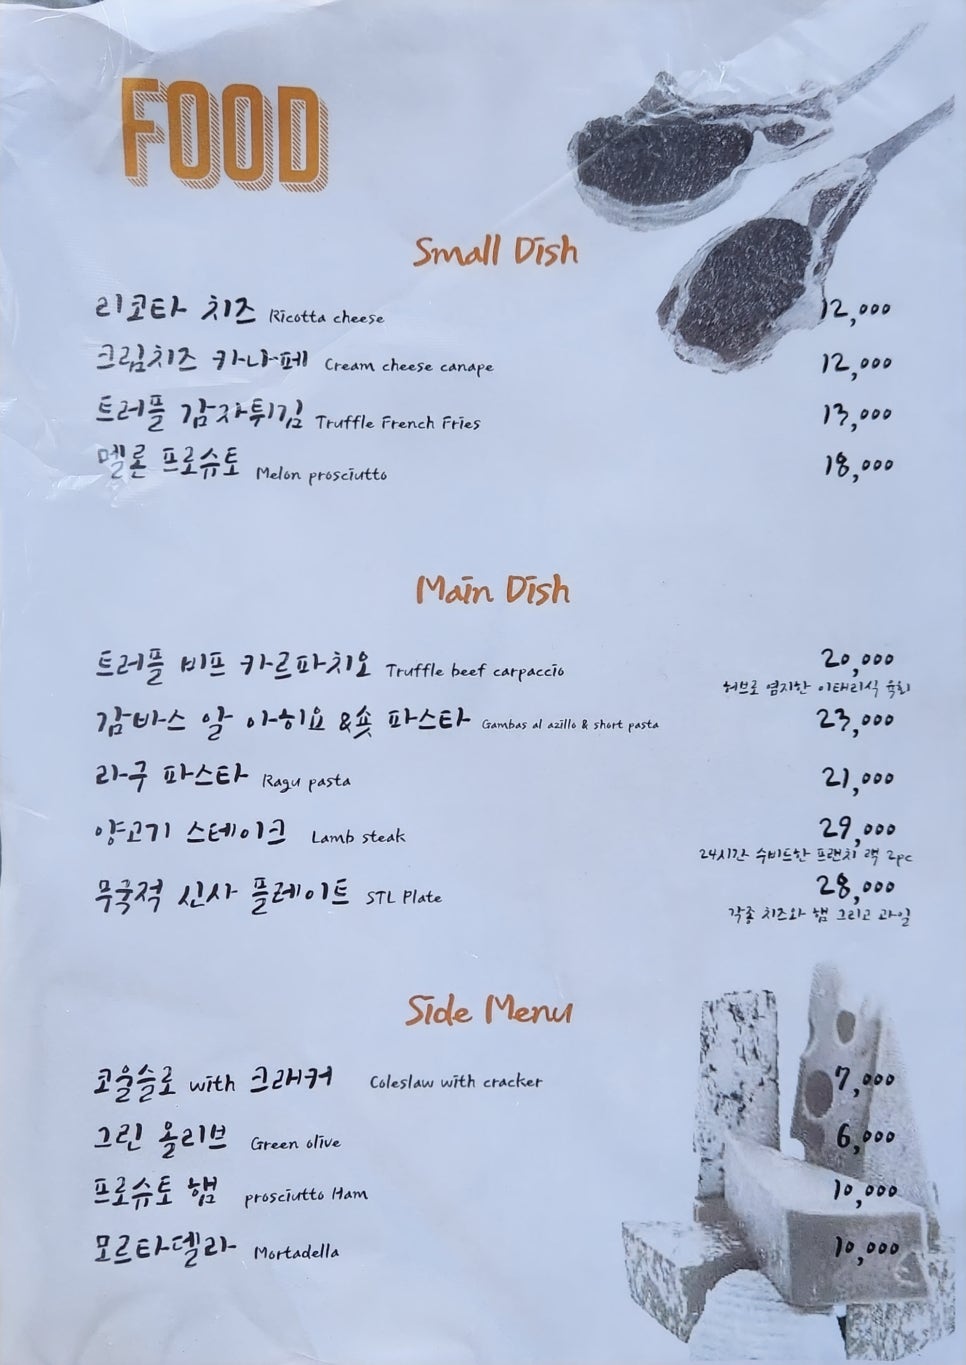 FOOD
Small Dish
리코타 치즈 Ricotta cheese 12,000
크림치즈 카나페 Cream cheese canape 12,000
트러플 감자튀김 Truffle French Fries 13,000
멜론 프로슈토 Melon prosciutto 18,000
Main Dish
트러플 비프 카르파치오 Truffle beef carpaccio 20,000
허브로 염지한 이태리식 육회
감바스 알 아히요 &숏 파스타 Gambas al azillo & short pasta 23,000
라구 파스타 Ragu pasta 21,000
양고기 스테이크 Lamb steak 29,000
24시간 수비드한 프랜치 랙 2pc
무국적 신사 플레이트 STL Plate 28,000
각종 치즈와 햄 그리고 과일
Side Menu
코울슬로 with 크래커 Coleslaw with cracker 7,000
그린 올리브 Green olive 6,000
프로슈토 햄 prosciutto Ham 10,000
모르타델라 Mortadella 10,000